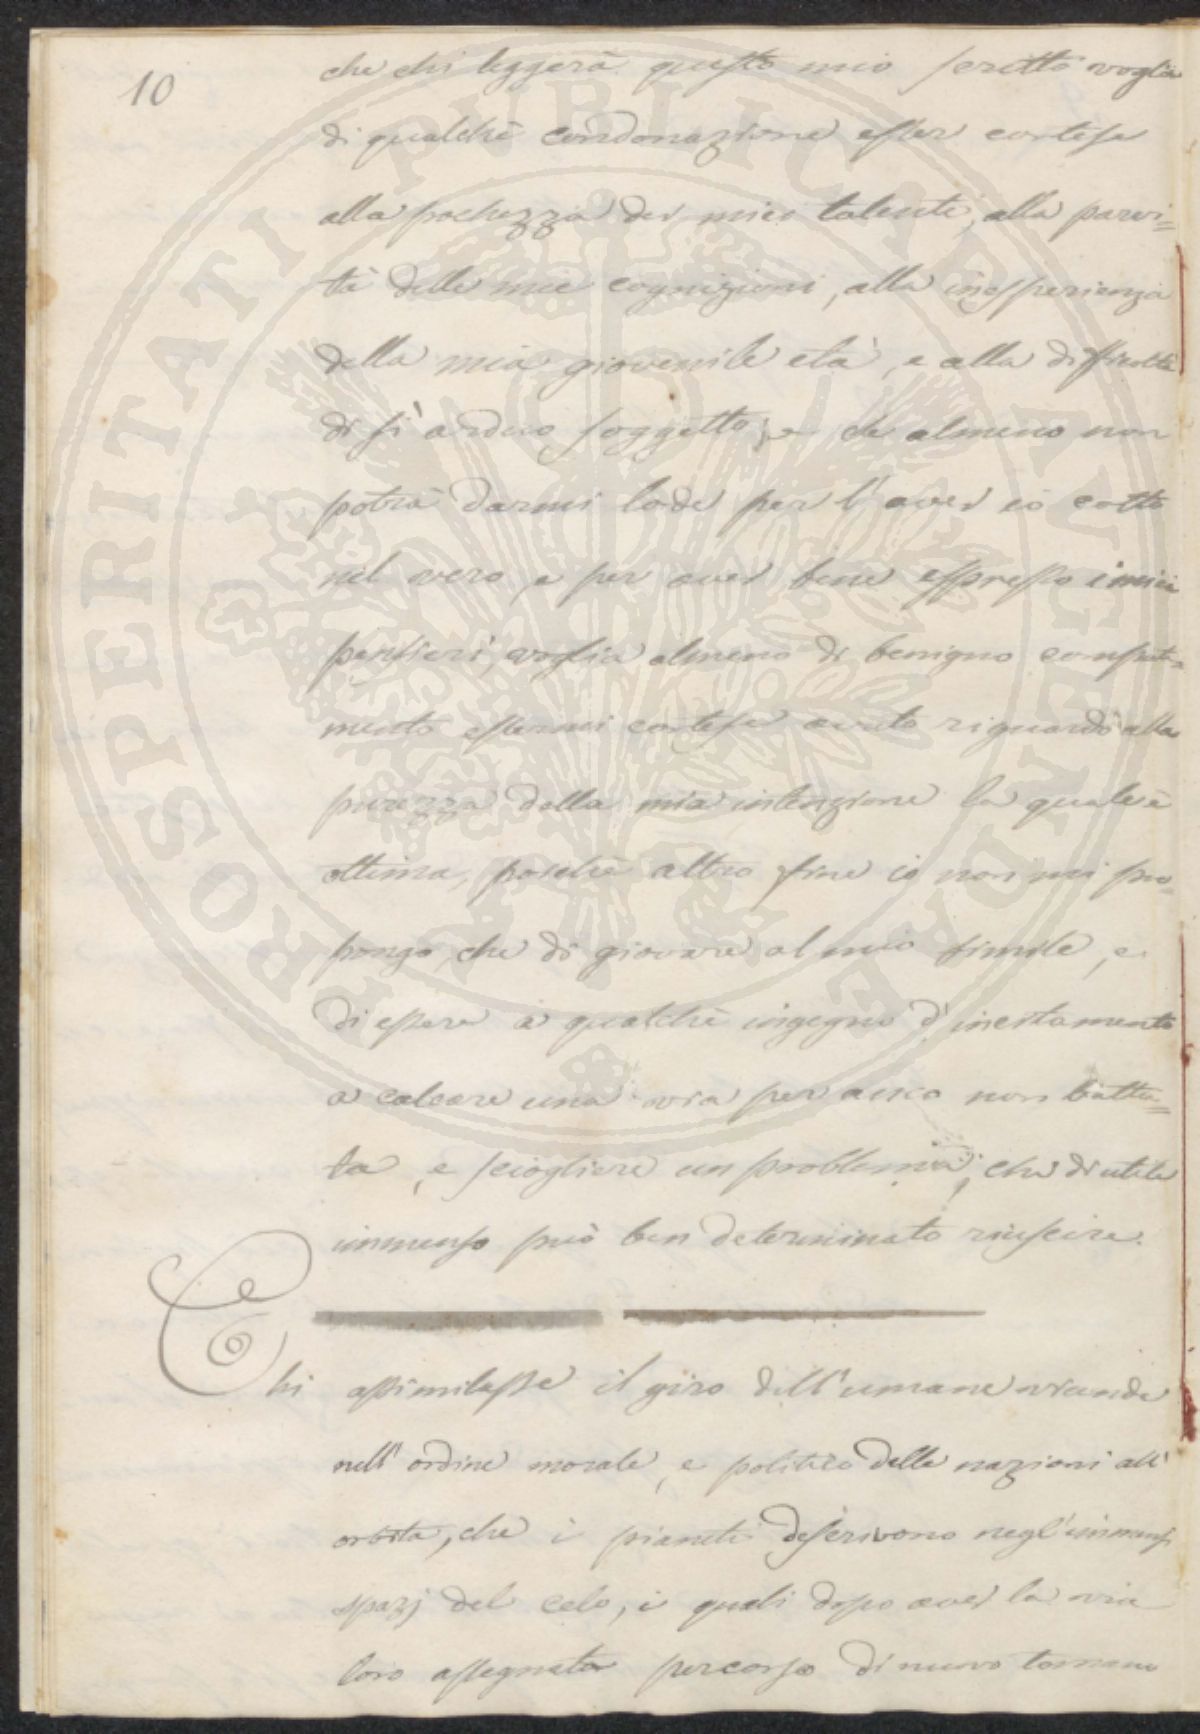 10
che chi leggerà questo mio scritto voglia
di qualche condonazione esser cortese
alla pochezza dei miei talenti, alla parvi=
tà delle mie cognizioni, alla inesperienza
della mia giovenile età, e alla difficoltà
di sì arduo soggetto; e che almeno non
potrà darmi lode per l'aver io colto
nel vero, e per aver bene espresso i miei
pensieri, voglia almeno di benigno compati=
mento essermi cortese avuto riguardo alla
purezza della mia intenzione la quale è
ottima, poichè altro fine io non mi pro=
pongo, che di giovare al mio simile, e
di essere a qualche ingegno d'incitamento
a calcare una via per anco non battu=
ta, e sciogliere un problema, che di utile
immenso può ben determinato riuscire.
Chi assimilasse il giro dell'umane vicende
nell'ordine morale, e politico delle nazioni all'
orbita, che i pianeti descrivono negl'immensi
spazj del celo, i quali dopo aver la via
loro assegnata percorso di nuovo tornano
PROSPERITATI PUBLICAE AUGENDAE